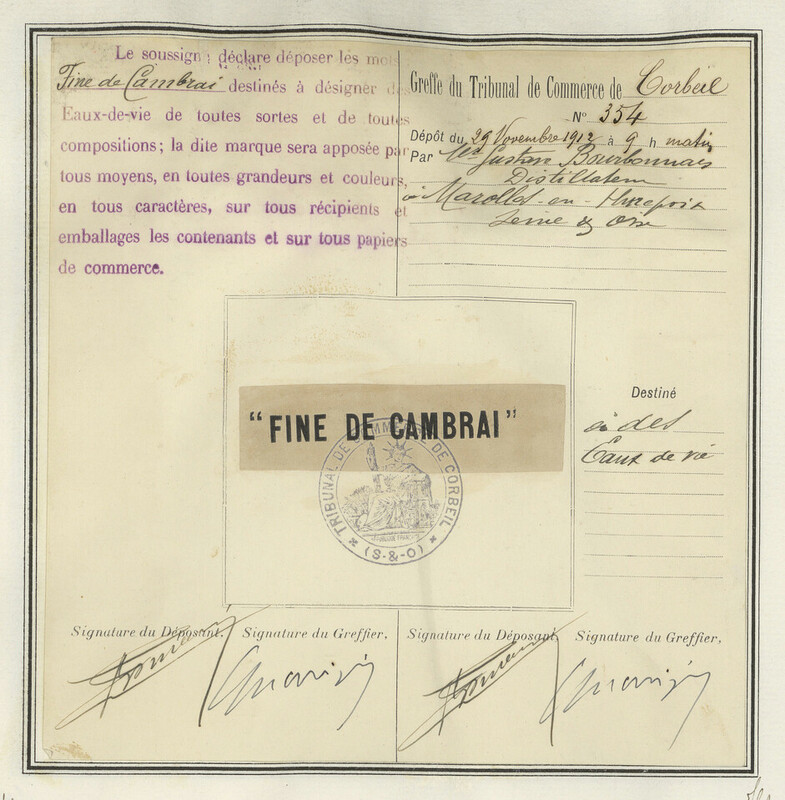 Le soussigné déclare déposer les mots
Fine de Cambrai destinés à désigner des
Eaux-de-vie de toutes sortes et de toutes
compositions ; la dite marque sera apposée par
tous moyens, en toutes grandeurs et couleurs,
en tous caractères, sur tous récipients et
emballages les contenants et sur tous papiers
de commerce.
Greffe du Tribunal de Commerce de Corbeil
N° 354
Dépôt du 29 Novembre 1912 à 9 h matin
Par Mr Gustave Bourbonnais
Distillateur
à Marolles-en-Hurepoix
Seine & Oise
"FINE DE CAMBRAI"
TRIBUNAL DE COMMERCE DE CORBEIL
(S-&-O)
Destiné
à des
Eaux de vie
Signature du Déposant, Signature du Greffier,
Signature du Déposant, Signature du Greffier,